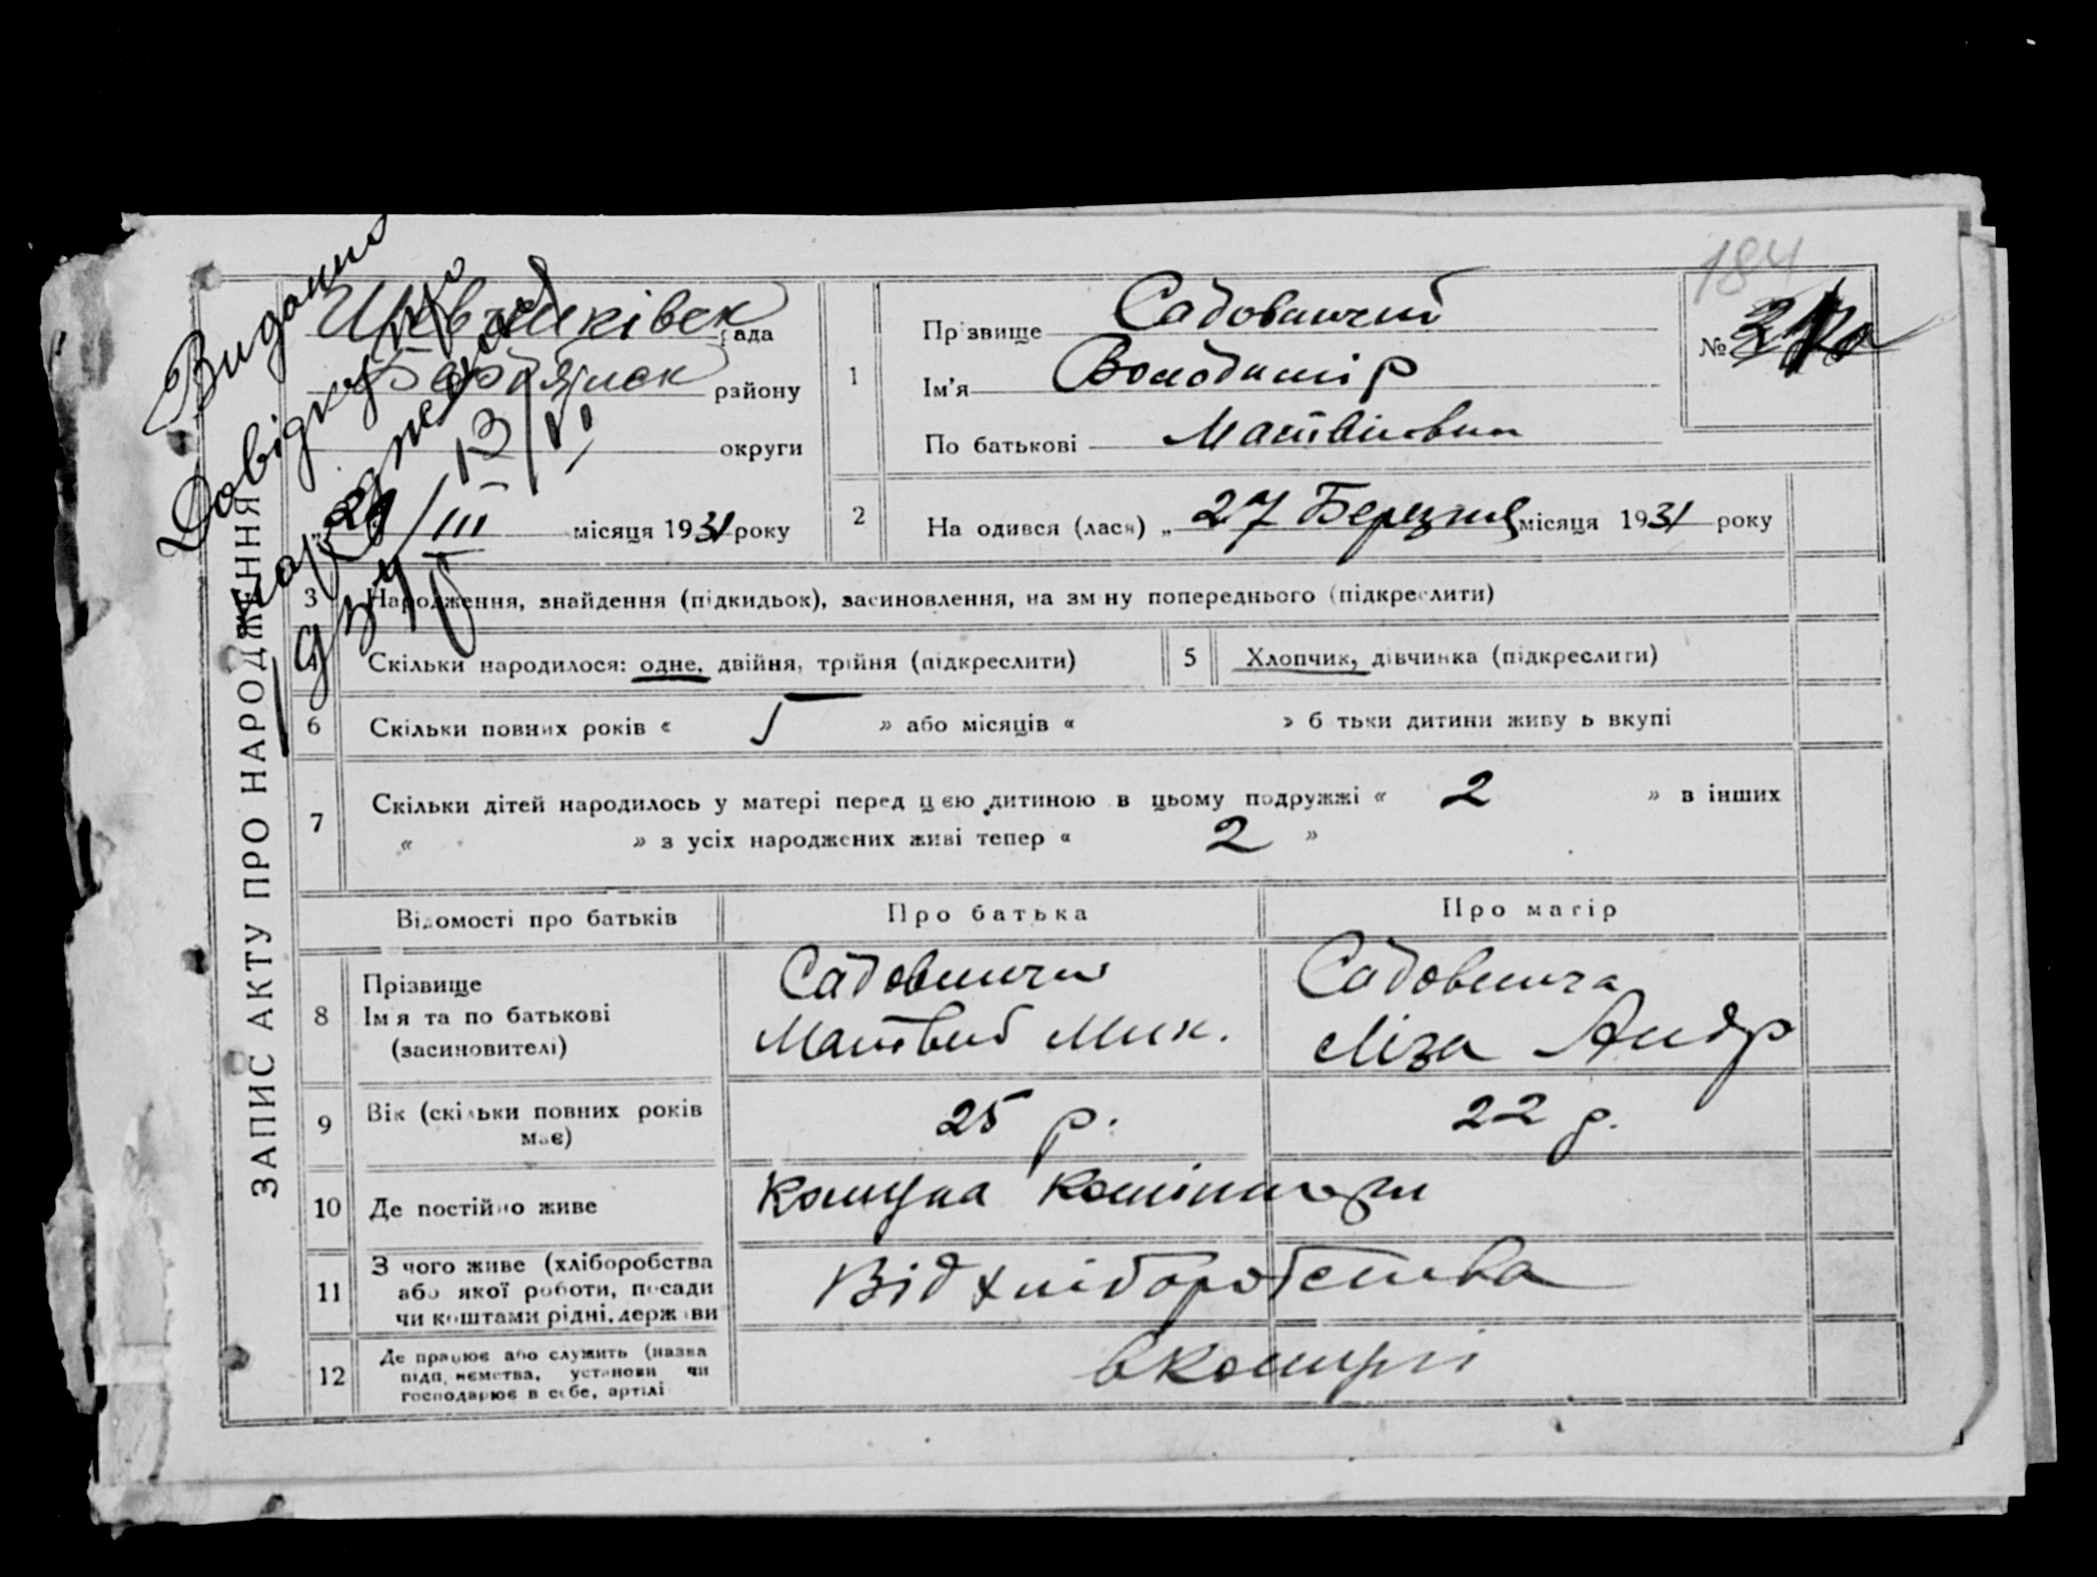 184
Видано
Довідку про
народжен
13/VI
ЗАПИС АКТУ ПРО НАРОДЖЕННЯ
Шевченківск рада
району
округи
/III місяця 1931 року
1
Прізвище Садовничий
Ім'я Володимір
По батькові Матвійович
№
2
На одився (лася) „ 27 Березня місяця 1931 року
3 Народження, знайдення (підкидьок), засиновлення, на зм ну попереднього (підкреслити)
Скільки народилося: одне, двійня, трійня (підкреслити)
5 Хлопчик, дівчинка (підкреслити)
6 Скільки повних років « 5 » або місяців « » б тьки дитини живу ь вкупі
7 Скільки дітей народилось у матері перед цією дитиною в цьому подружжі « 2 » в інших
« » з усіх народжених живі тепер « 2 »
Відомості про батьків Про батька Про матір
8 Прізвище
Ім'я та по батькові
(засиновителі)
Садовничий
Матвій Мих.
Садовнича
Ліза Андр
9 Вік (скільки повних років
має)
25 р.
22 р.
10 Де постійно живе
Комуна Комінтерн
11 З чого живе (хліборобства
або якої роботи, посади
чи коштами рідні, держ ви
Від хліборобства
12 Де працює або служить (назва
підп. иємства, установи чи
господарює в себе, артілі
в комуні